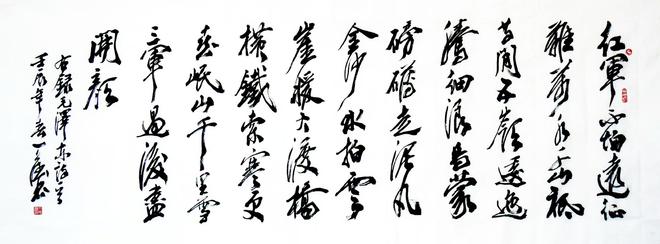 红軍不怕遠征
難萬水千山祇
等閑五嶺逶迤
騰細浪烏蒙
磅礴走泥丸
金沙水拍雲
崖暖大渡橋
橫鐵索寒更
喜岷山千里雪
三軍過後盡
開顏
右録毛澤東詩
壬辰年春